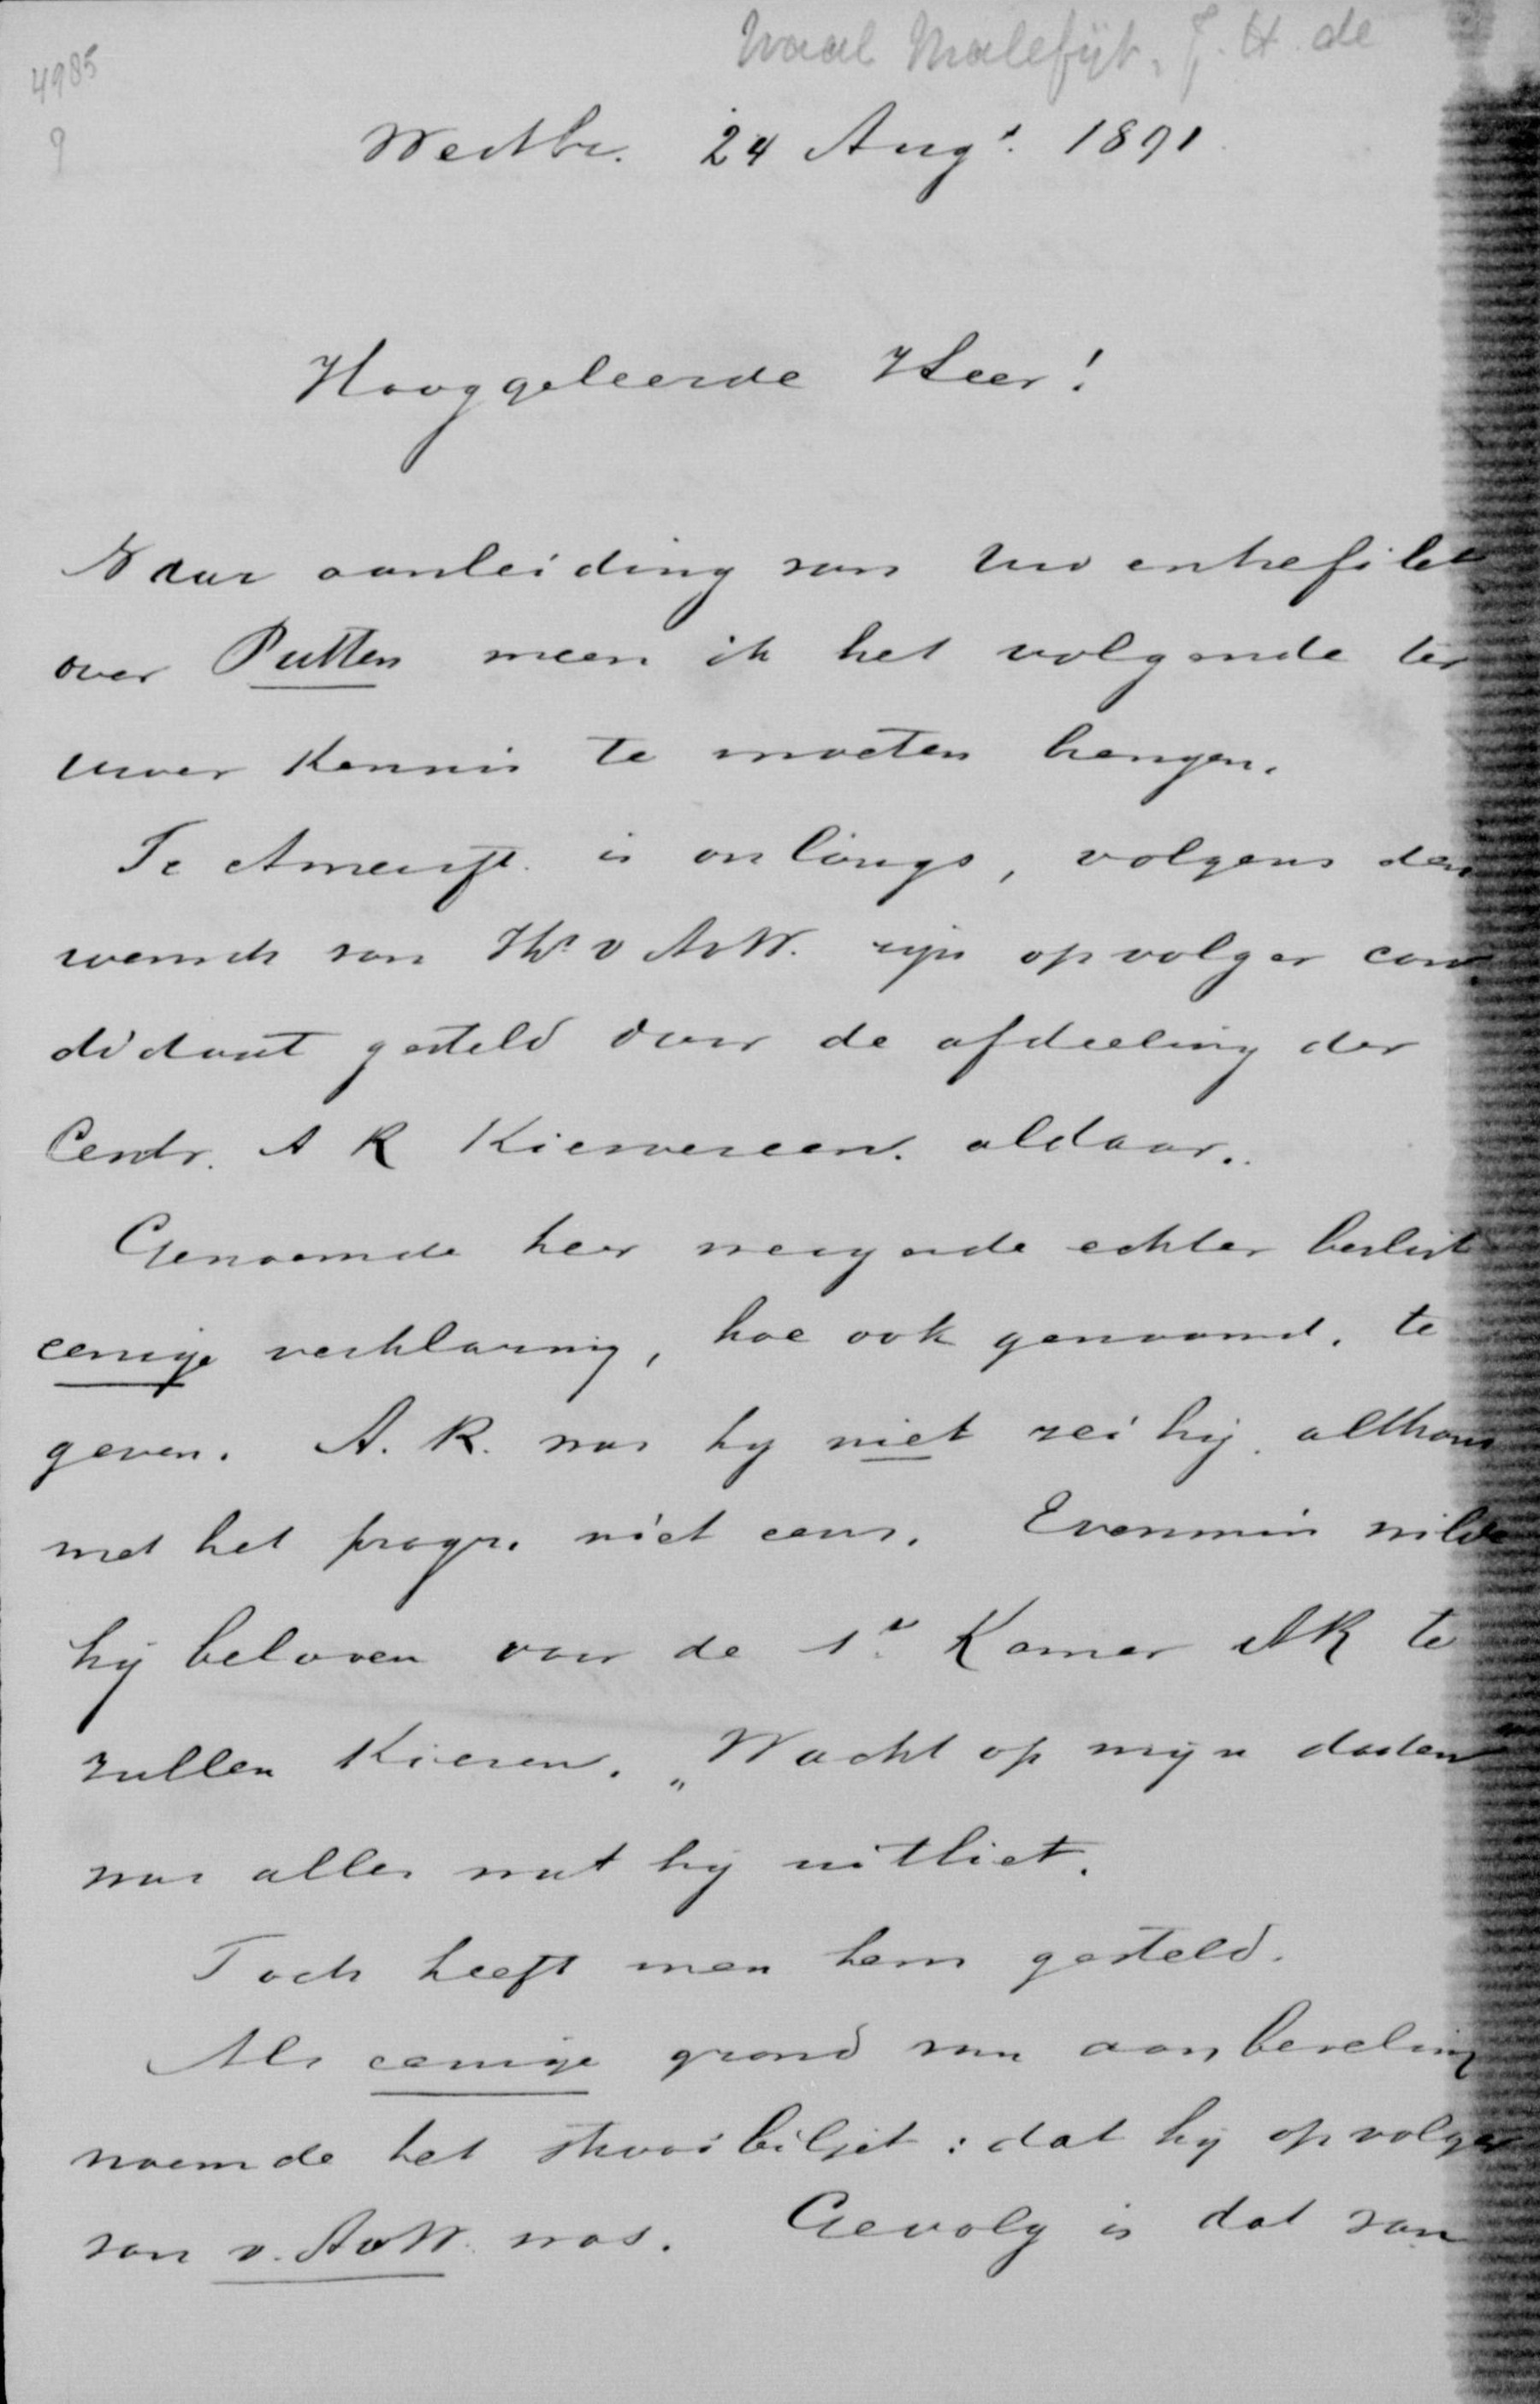 Waal Malefijt, J. H. de
4985
?
Westbr. 24 Augs. 1891
Hooggeleerde Heer!
Naar aanleiding van Uw entrefilet
over Putten meen ik het volgende ter
uwer kennis te moeten brengen.
Te Amersft. is onlangs, volgens den
wensch van Thr v AvW. zijn opvolger can
didaat gesteld door de afdeeling der
Centr. A R Kiesvereen. aldaar.
Genoemde heer weigerde echter beslist
eenige verklaring, hoe ook genaamd, te
geven. A. R. was hij niet zei hij, althans
met het progr. niet eens. Evenmin wilde
hij beloven voor de 1e Kamer AR te
zullen kiezen. „Wacht op mijn daden"
was alles wat hij uitliet.
Toch heeft men hem gesteld.
Als eenige grond van aanbeveling
noemde het strooibiljet: dat hij opvolger
van v. AvW. was. Gevolg is dat van